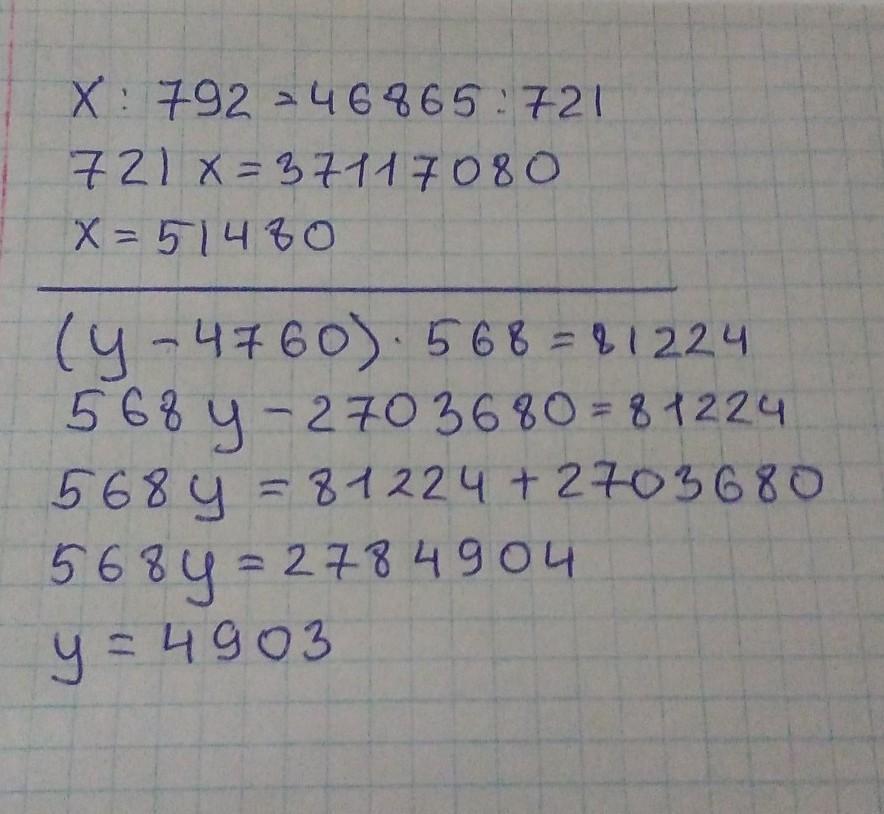 x : 792 = 46865 : 721
721 x = 37117080
x = 51480
(y - 4760) · 568 = 81224
568 y - 2703680 = 81224
568 y = 81224 + 2703680
568 y = 2784904
y = 4903